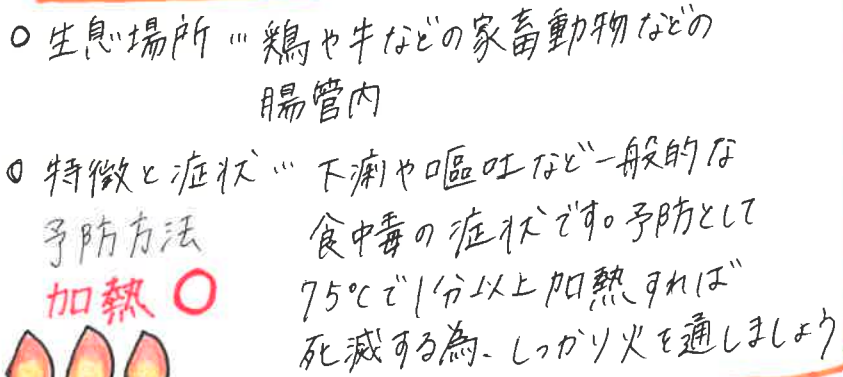 ○ 生息場所 … 鶏や牛などの家畜動物などの
腸管内
○ 特徴と症状 … 下痢や嘔吐など一般的な
予防方法 食中毒の症状です。予防として
加熱 ○ 75℃で1分以上加熱すれば
死滅する為、しっかり火を通しましょう